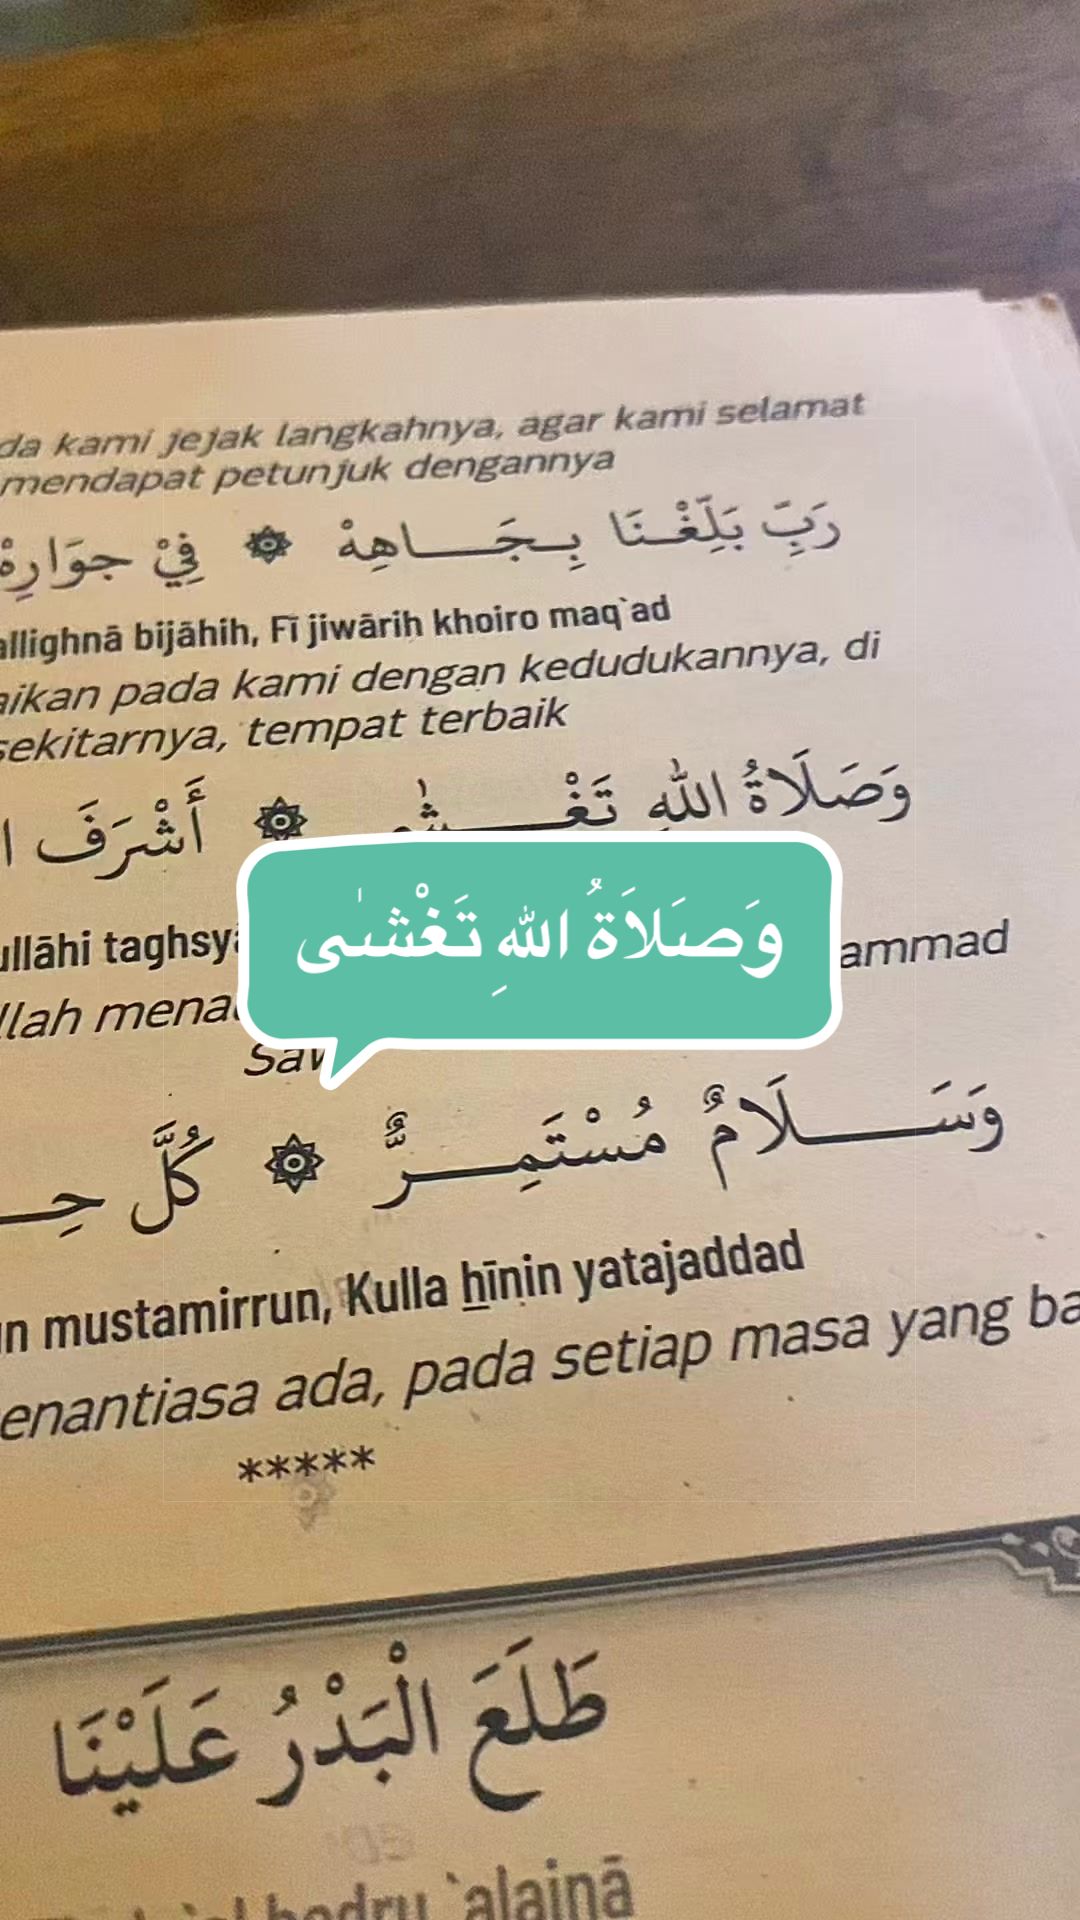 da kami jejak langkahnya, agar kami selamat
mendapat petunjuk dengannya
رَبِّ بَلِّغْنَا بِجَاهِهْ ۞ فِيْ جِوَارِهْ
allighnā bijāhih, Fī jiwārih khoiro maq`ad
aikan pada kami dengan kedudukannya, di
sekitarnya, tempat terbaik
وَصَلَاةُ اللهِ تَغْشٰى ۞ أَشْرَفَ
وَصَلاَةُ اللهِ تَغْشٰى
ullāhi taghsy ammad
llah mena
Saw
وَسَلَامٌ مُسْتَمِرٌّ ۞ كُلَّ حِ
un mustamirrun, Kulla hīnin yatajaddad
enantiasa ada, pada setiap masa yang ba
*****
طَلَعَ الْبَدْرُ عَلَيْنَا
badru `alainā